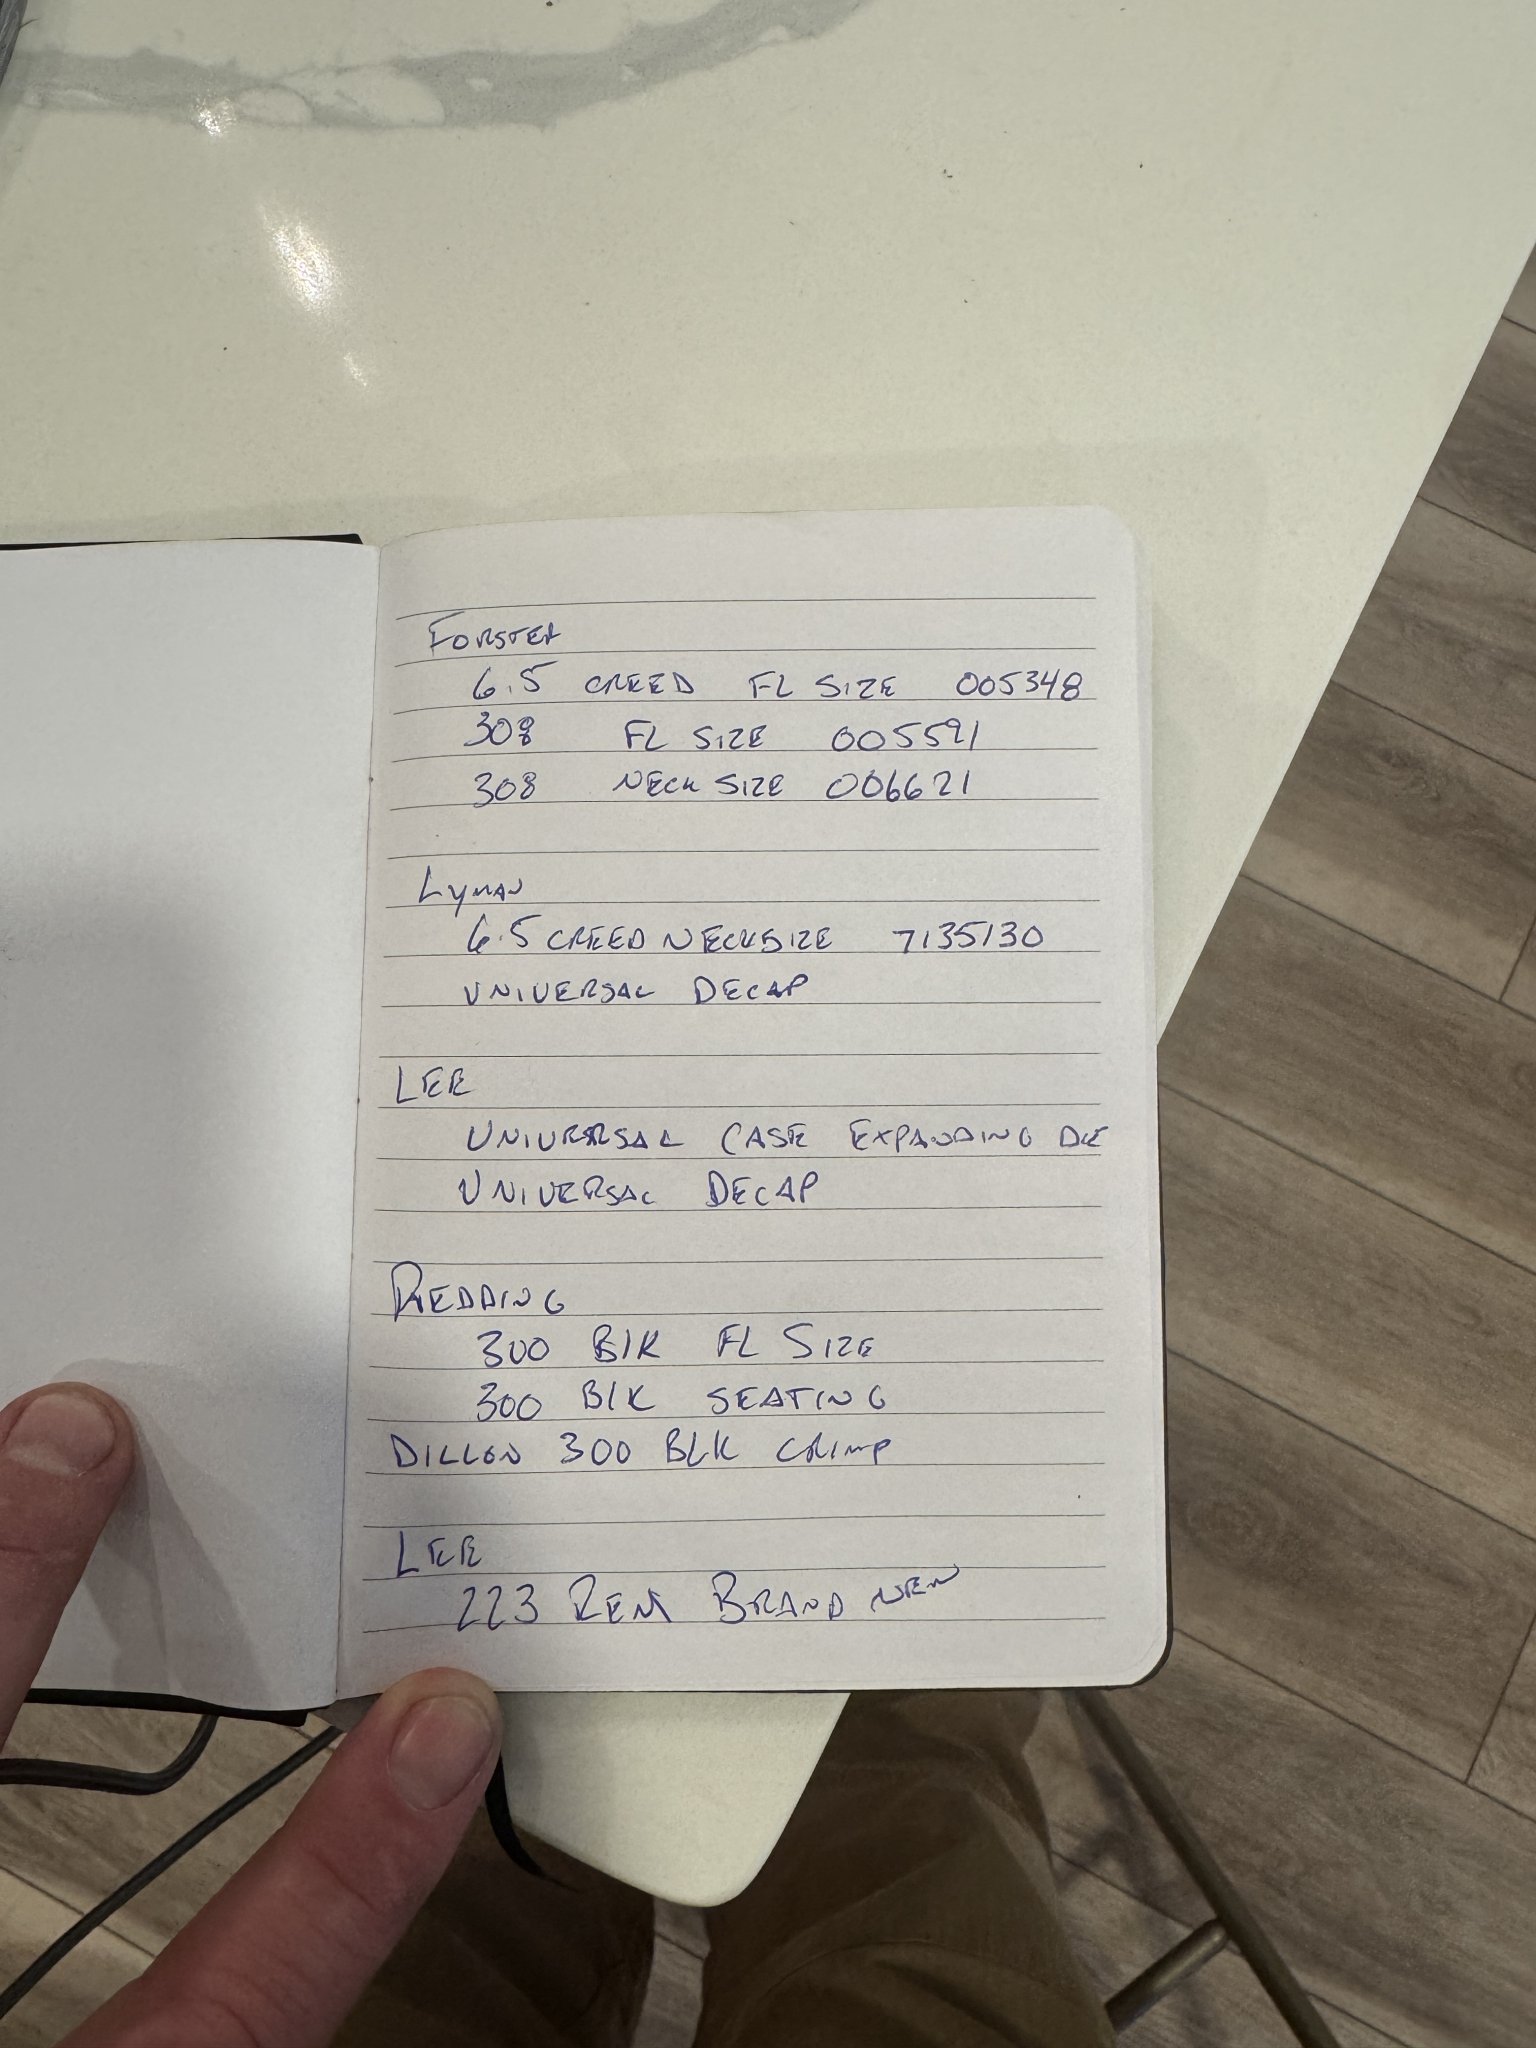 FORSTER
6.5 CREED FL SIZE 005348
308 FL SIZE 005591
308 NECK SIZE 006621
LYMAN
6.5 CREED NECK SIZE 7135130
UNIVERSAL DECAP
LEE
UNIVERSAL CASE EXPANDING DIE
UNIVERSAL DECAP
REDDING
300 BLK FL SIZE
300 BLK SEATING
DILLON 300 BLK CRIMP
LEE
223 REM BRAND NEW